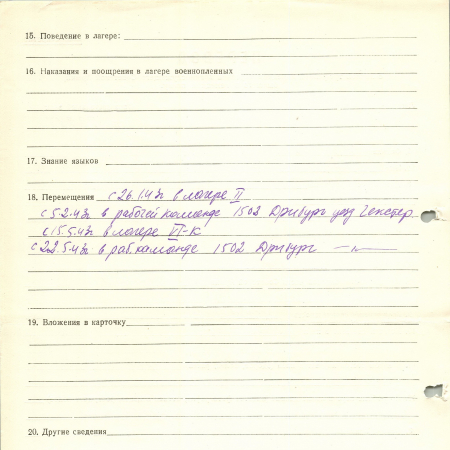 15. Поведение в лагере:
16. Наказания и поощрения в лагере военнопленных
17. Знание языков
18. Перемещения с 26.1.42г в лагере II
с 5.2.42г в рабочей команде 1502 Дрибург уезд
с 15.5.42г в лагере VI-К
с 22.5.42г в раб. команде 1502 Дрибург — " —
19. Вложения в карточку
20. Другие сведения